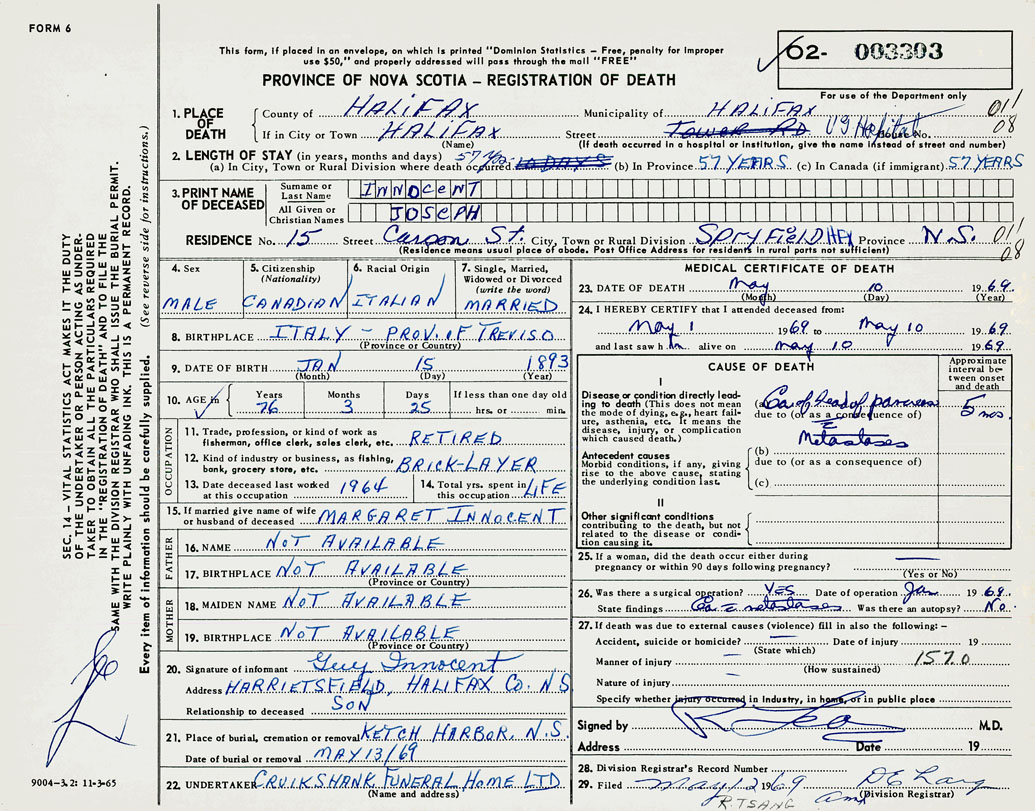 FORM 6
This form, if placed in an envelope, on which is printed "Dominion Statistics – Free, penalty for improper
use $50," and properly addressed will pass through the mail "FREE"
PROVINCE OF NOVA SCOTIA – REGISTRATION OF DEATH
62- 003303
For use of the Department only
011
08
1. PLACE OF DEATH
County of HALIFAX Municipality of HALIFAX
If in City or Town HALIFAX Street Tower RD VG Hospital House No.
(Name) (If death occurred in a hospital or institution, give the name instead of street and number)
2. LENGTH OF STAY (in years, months and days) 57 Yrs.
(a) In City, Town or Rural Division where death occurred 10 DAYS (b) In Province 57 YEARS (c) In Canada (if immigrant) 57 YEARS
3. PRINT NAME OF DECEASED
Surname or Last Name INNOCENT
All Given or Christian Names JOSEPH
RESIDENCE No. 15 Street Carson St. City, Town or Rural Division SPRYFIELD HFX Province N.S. 011
08
(Residence means usual place of abode. Post Office Address for residents in rural parts not sufficient)
4. Sex
MALE
5. Citizenship
(Nationality)
CANADIAN
6. Racial Origin
ITALIAN
7. Single, Married,
Widowed or Divorced
(write the word)
MARRIED
8. BIRTHPLACE ITALY – PROV. OF TREVISO
(Province or Country)
9. DATE OF BIRTH JAN 15 1893
(Month) (Day) (Year)
10. AGE in
Years Months Days If less than one day old
76 3 25 hrs. or min.
OCCUPATION
11. Trade, profession, or kind of work as
fisherman, office clerk, sales clerk, etc. RETIRED
12. Kind of industry or business, as fishing,
bank, grocery store, etc. BRICK-LAYER
13. Date deceased last worked
at this occupation 1964
14. Total yrs. spent in
this occupation LIFE
15. If married give name of wife
or husband of deceased MARGARET INNOCENT
FATHER
16. NAME NOT AVAILABLE
17. BIRTHPLACE NOT AVAILABLE
(Province or Country)
MOTHER
18. MAIDEN NAME NOT AVAILABLE
19. BIRTHPLACE NOT AVAILABLE
(Province or Country)
20. Signature of informant Guy Innocent
Address HARRIETSFIELD, HALIFAX Co. N.S.
Relationship to deceased SON
21. Place of burial, cremation or removal KETCH HARBOR, N.S.
Date of burial or removal MAY 13/69
22. UNDERTAKER CRUIKSHANK FUNERAL HOME LTD.
(Name and address)
MEDICAL CERTIFICATE OF DEATH
23. DATE OF DEATH May 10 1969.
(Month) (Day) (Year)
24. I HEREBY CERTIFY that I attended deceased from:
May 1 1969 to May 10 1969
and last saw him alive on May 10 1969.
CAUSE OF DEATH
Approximate
interval be-
tween onset
and death
I
Disease or condition directly lead-
ing to death (This does not mean
the mode of dying, e.g., heart fail-
ure, asthenia, etc. It means the
disease, injury, or complication
which caused death.)
(a) Ca. of head of pancreas 5 mos.
due to (or as a consequence of)
c̄
Metastases
Antecedent causes
Morbid conditions, if any, giving
rise to the above cause, stating
the underlying condition last.
(b)
due to (or as a consequence of)
(c)
II
Other significant conditions
contributing to the death, but not
related to the disease or condi-
tion causing it.
25. If a woman, did the death occur either during
pregnancy or within 90 days following pregnancy?
(Yes or No)
26. Was there a surgical operation? YES Date of operation Jan 1969.
State findings Ca. c̄ metastases Was there an autopsy? No.
27. If death was due to external causes (violence) fill in also the following: –
Accident, suicide or homicide? Date of injury 19
(State which)
Manner of injury 157.0
(How sustained)
Nature of injury
Specify whether injury occurred in industry, in home, or in public place
Signed by M.D.
Address Date 19
28. Division Registrar's Record Number
29. Filed May 12 1969
(Division Registrar)
R. TSANG
SEC. 14 – VITAL STATISTICS ACT MAKES IT THE DUTY
OF THE UNDERTAKER OR PERSON ACTING AS UNDER-
TAKER TO OBTAIN ALL THE PARTICULARS REQUIRED
IN THE "REGISTRATION OF DEATH" AND TO FILE THE
SAME WITH THE DIVISION REGISTRAR WHO SHALL ISSUE THE BURIAL PERMIT.
WRITE PLAINLY WITH UNFADING INK. THIS IS A PERMANENT RECORD.
Every item of information should be carefully supplied. (See reverse side for instructions.)
9004–3.2: 11-3-65